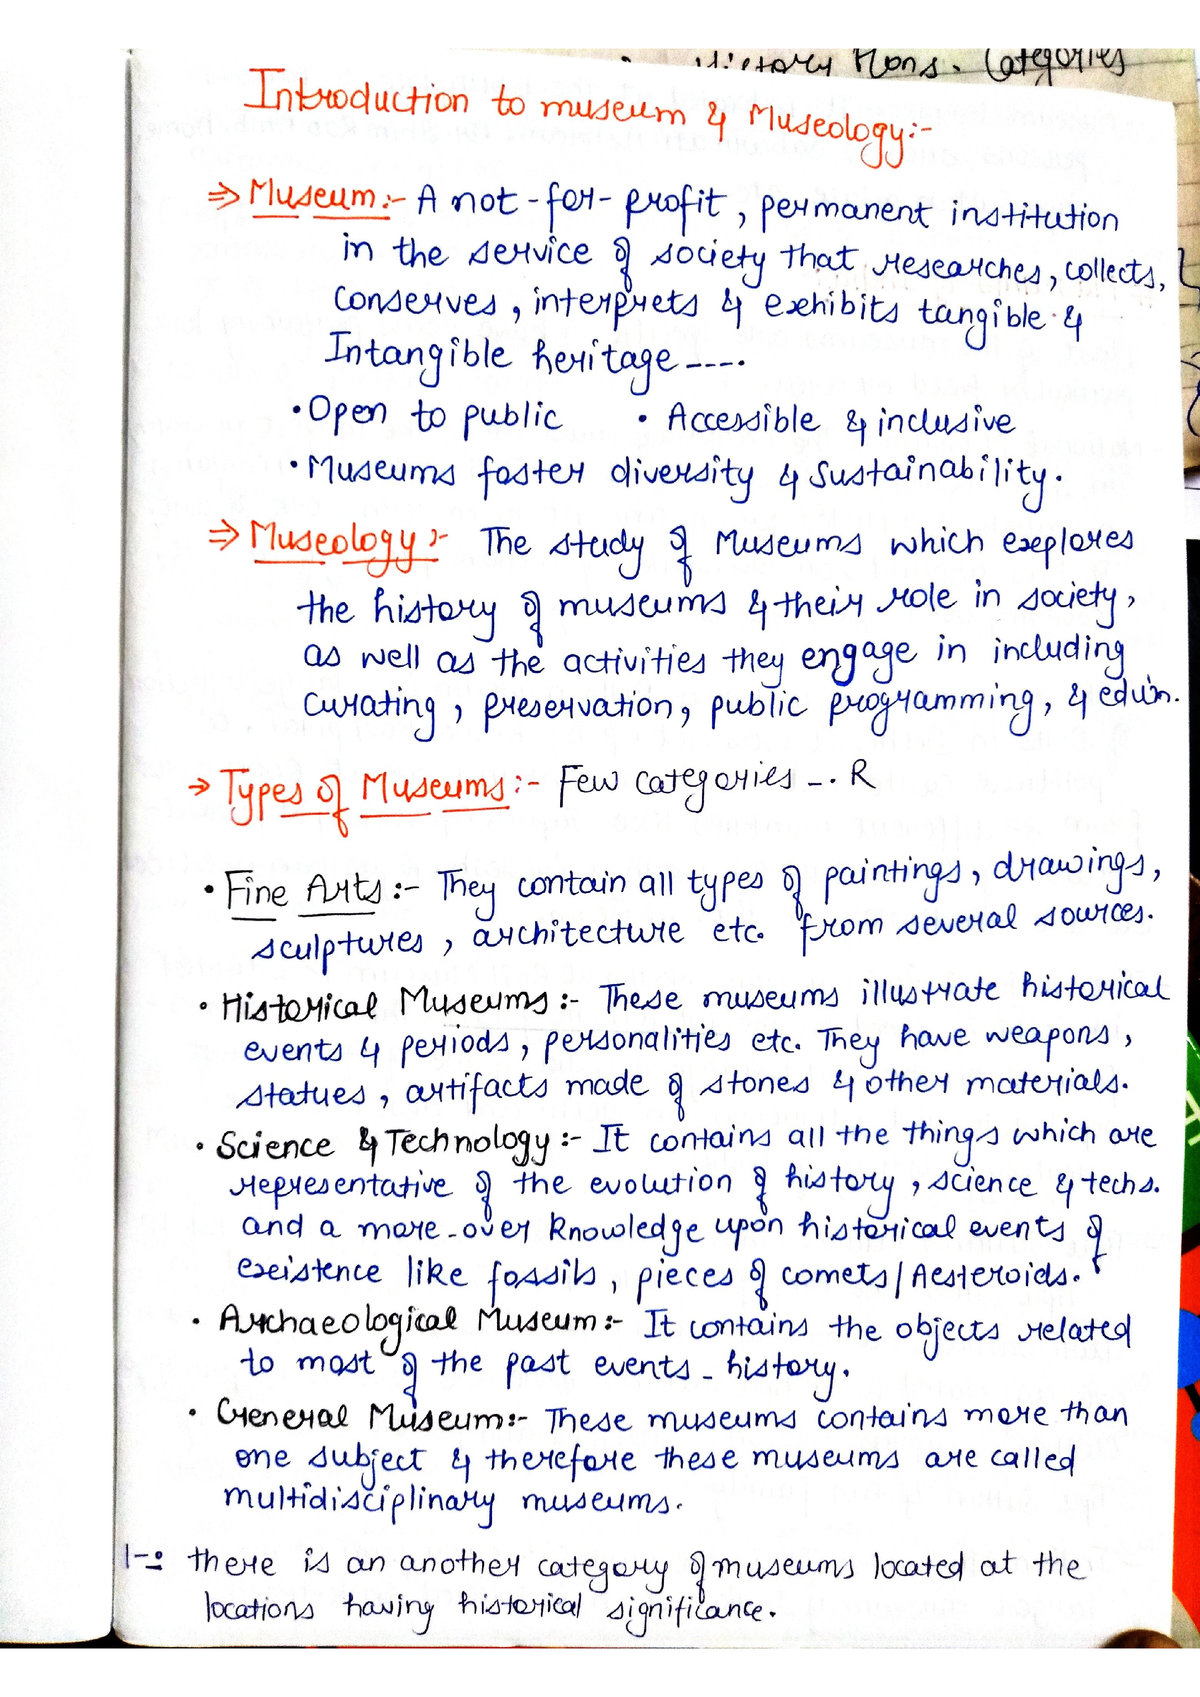 History Hons. Categories
Introduction to museum & Museology:-
⇒ Museum:- A not-for-profit, permanent institution
in the service of society that researches, collects,
conserves, interprets & exhibits tangible &
Intangible heritage ----.
• Open to public • Accessible & inclusive
• Museums foster diversity & Sustainability.
⇒ Museology:- The study of Museums which explores
the history of museums & their role in society,
as well as the activities they engage in including
curating, preservation, public programming, & edu'n.
→ Types of Museums:- Few categories -. R
• Fine Arts:- They contain all types of paintings, drawings,
sculptures, architecture etc. from several sources.
• Historical Museums:- These museums illustrate historical
events & periods, personalities etc. They have weapons,
statues, artifacts made of stones & other materials.
• Science & Technology:- It contains all the things which are
representative of the evolution of history, science & techs.
and a more-over knowledge upon historical events of
existence like fossils, pieces of comets/Aesteroids.
• Archaeological Museum:- It contains the objects related
to most of the past events - history.
• General Museum:- These museums contains more than
one subject & therefore these museums are called
multidisciplinary museums.
1-: there is an another category of museums located at the
locations having historical significance.